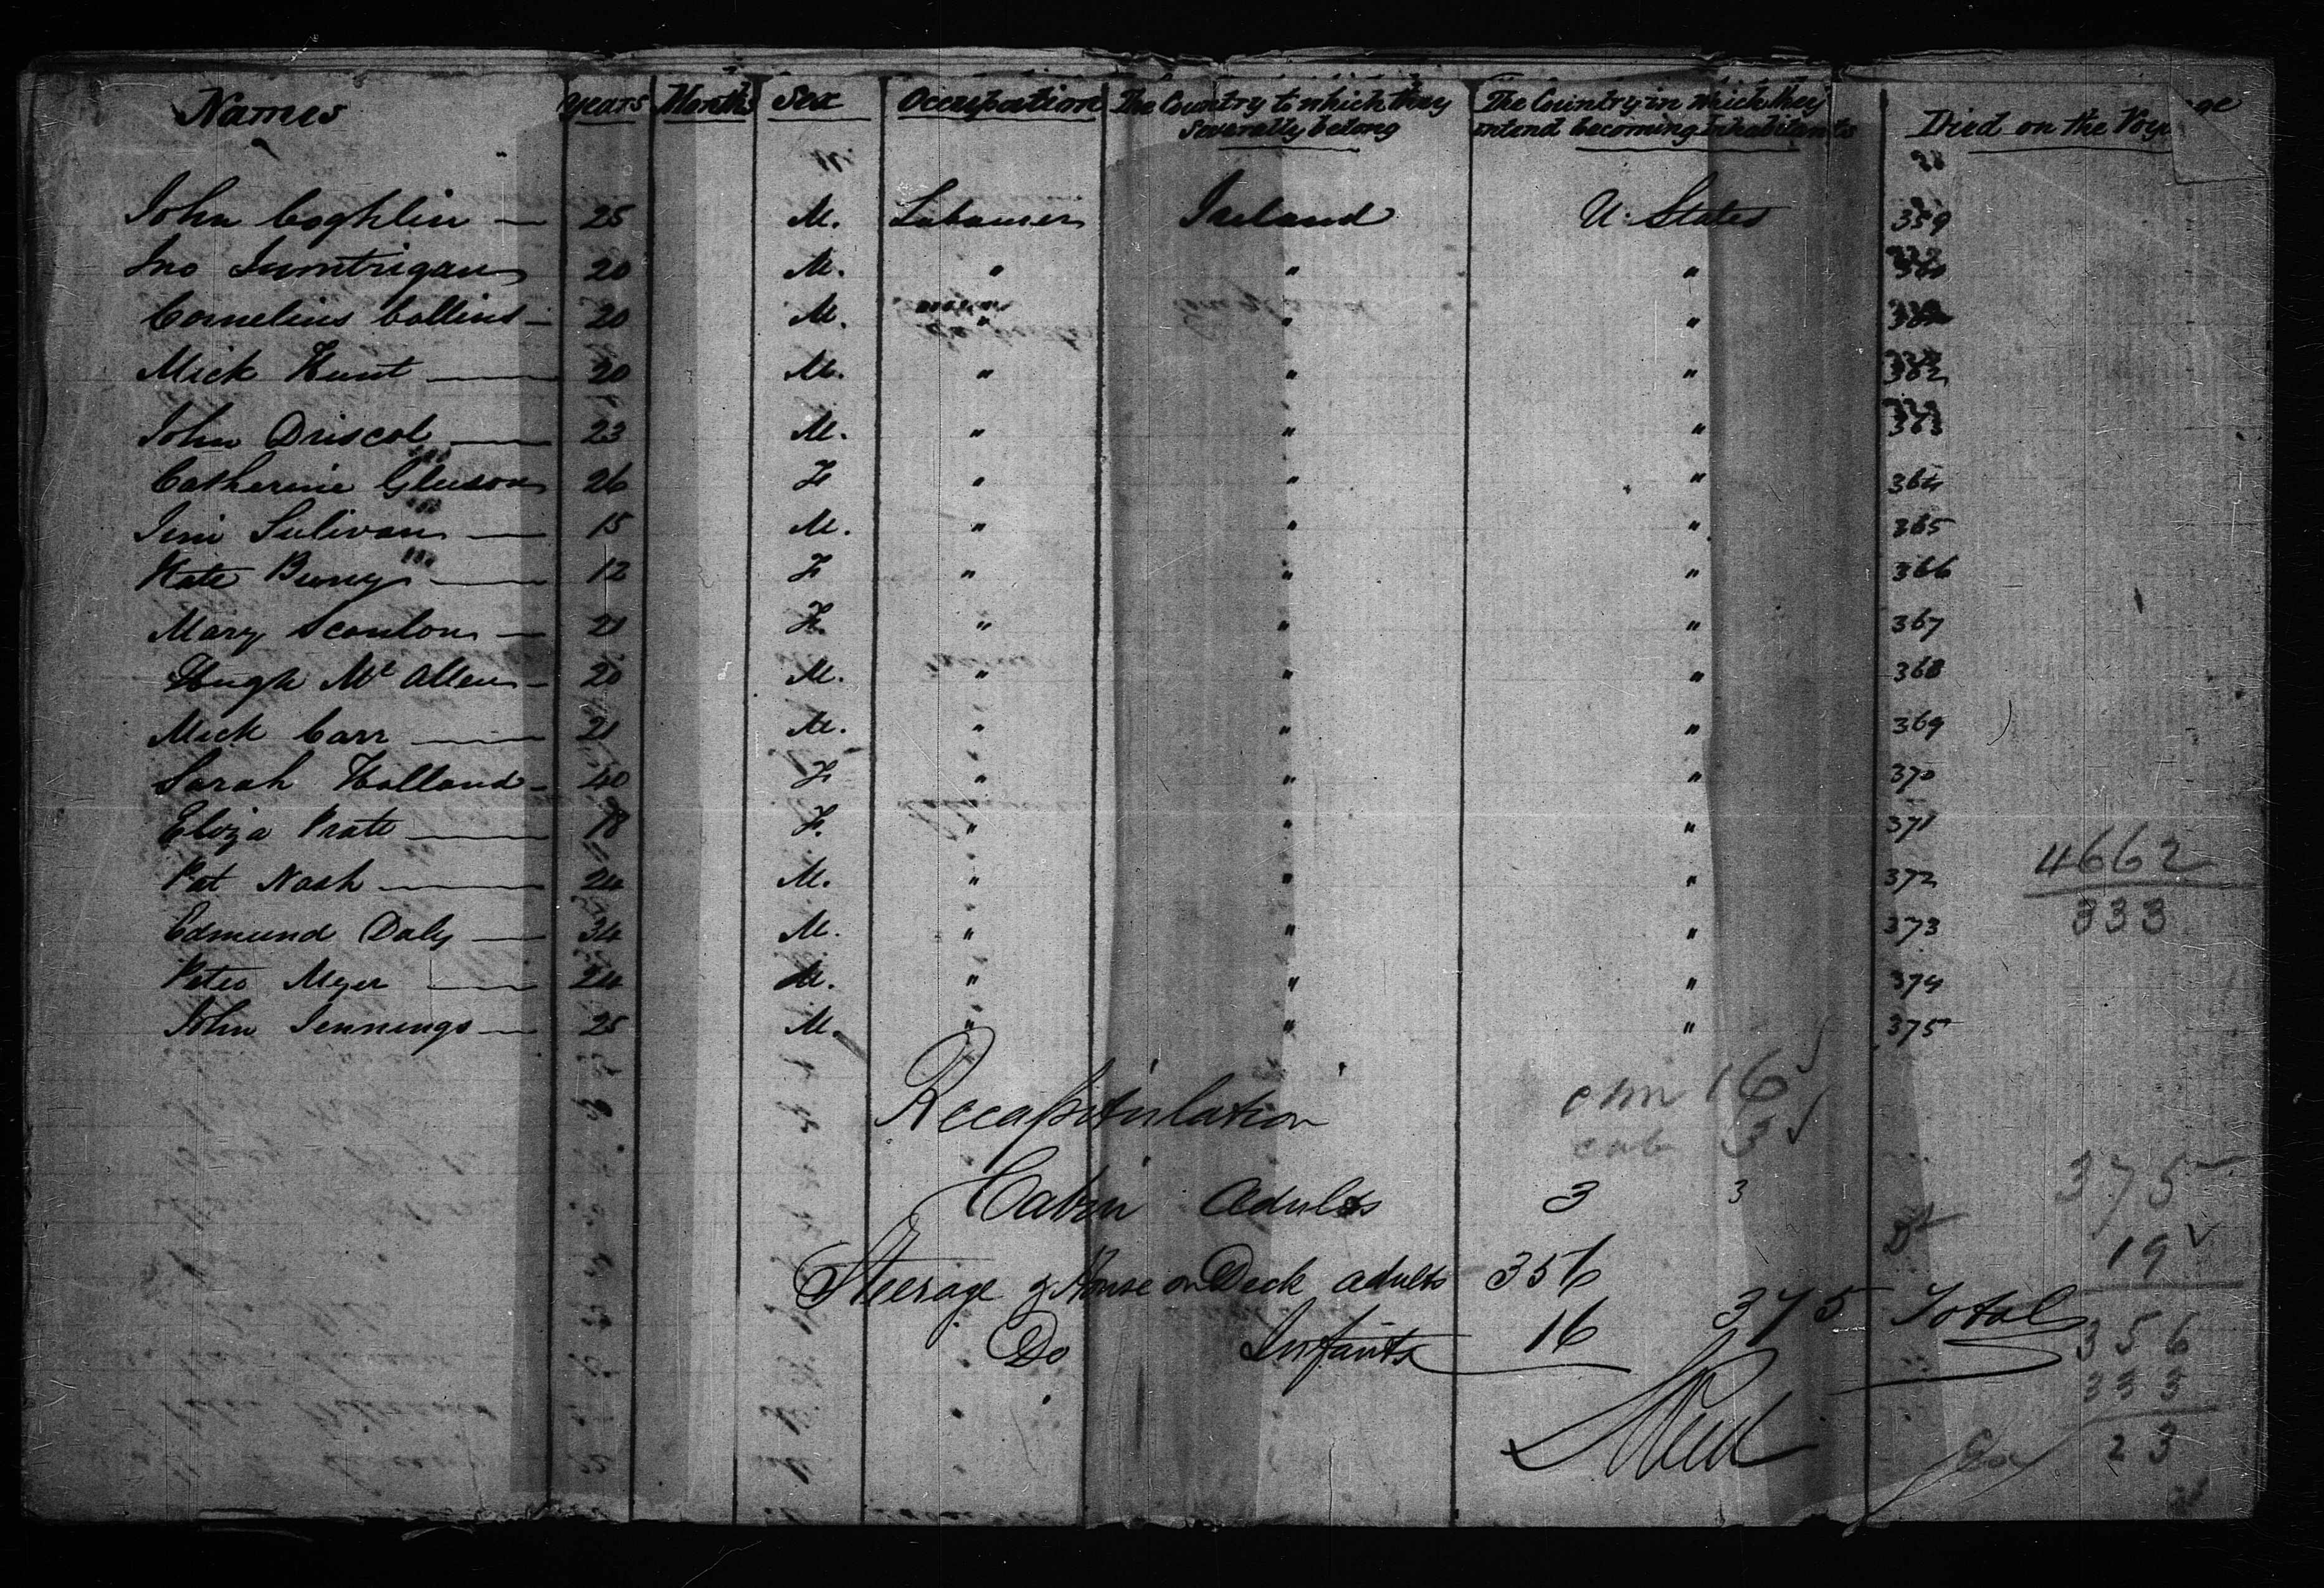 Names Years Months Sex Occupation The Country to which they Severally belong The Country in which they intend becoming Inhabitants Died on the Voyage
John Coghlin — 25 M. Labourer Ireland U. States 359
Jno 20 M. " " " 360
Cornelius Collins — 20 M. " " "
Mick Hunt — 20 M. " " " 362
John Driscol — 23 M. " " " 363
Catherine Gleeson 26 F " " " 364
Jim Sulivan — 15 M. " " " 365
Kate — 12 F " " " 366
Mary Scanlon — 21 F. " " " 367
Hugh Mc Allen — 20 M. " " " 368
Mick Carr — 21 M. " " " 369
Sarah Holland — 40 F " " " 370
Eliza Prate — 18 F. " " " 371
Pat Nash — 24 M. " " " 372
4662
Edmund Daly — 34 M. " " " 373
333
Peter Myer — 24 M. " " " 374
John Jennings — 25 M. " " " 375
Recapitulation
16 ✓
cab 3 ✓
Cabin Adults 3 3
375
19 ✓
Steerage & House on Deck adults 356
Do Infants 16 375 Total
356
333
23